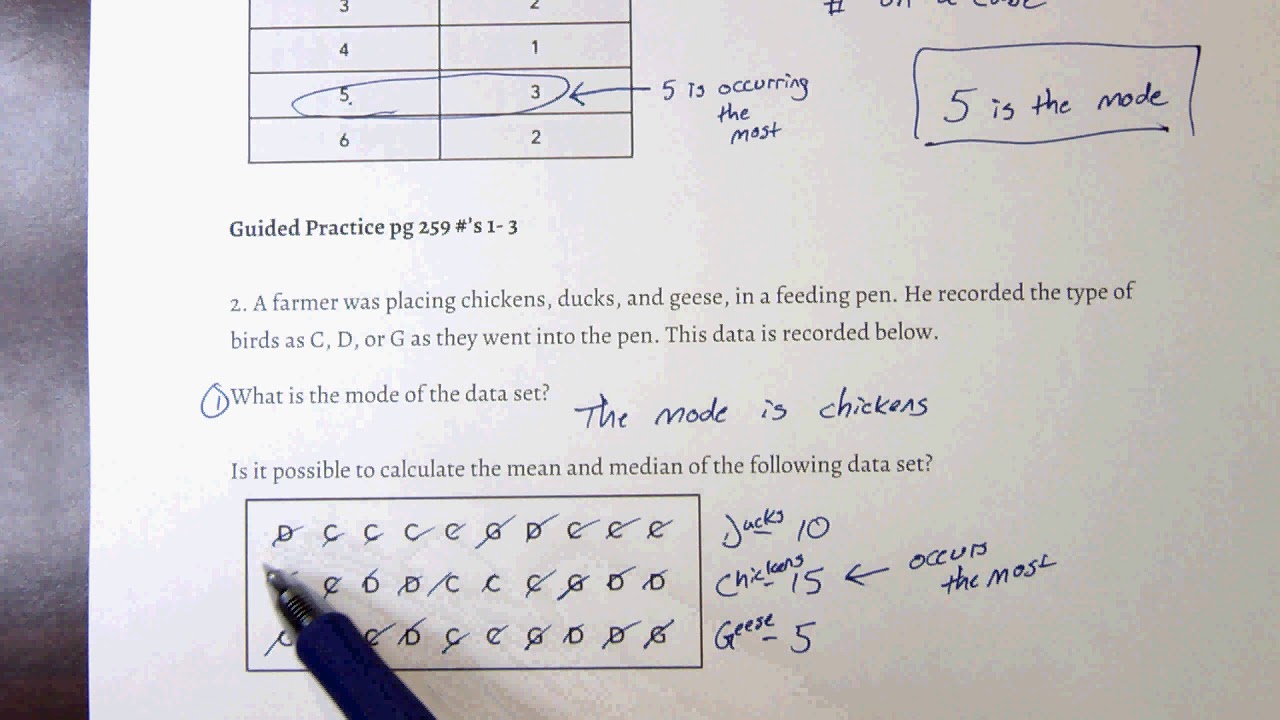 3 2
4 1
5. 3
6 2
5 is occurring
the
most
5 is the mode
Guided Practice pg 259 #'s 1- 3
2. A farmer was placing chickens, ducks, and geese, in a feeding pen. He recorded the type of
birds as C, D, or G as they went into the pen. This data is recorded below.
① What is the mode of the data set?
The mode is chickens
Is it possible to calculate the mean and median of the following data set?
D C C C C G D C C C
C D D C C C G D D
C C D C C G D D G
Ducks 10
Chickens 15 ← occurs
the most
Geese 5